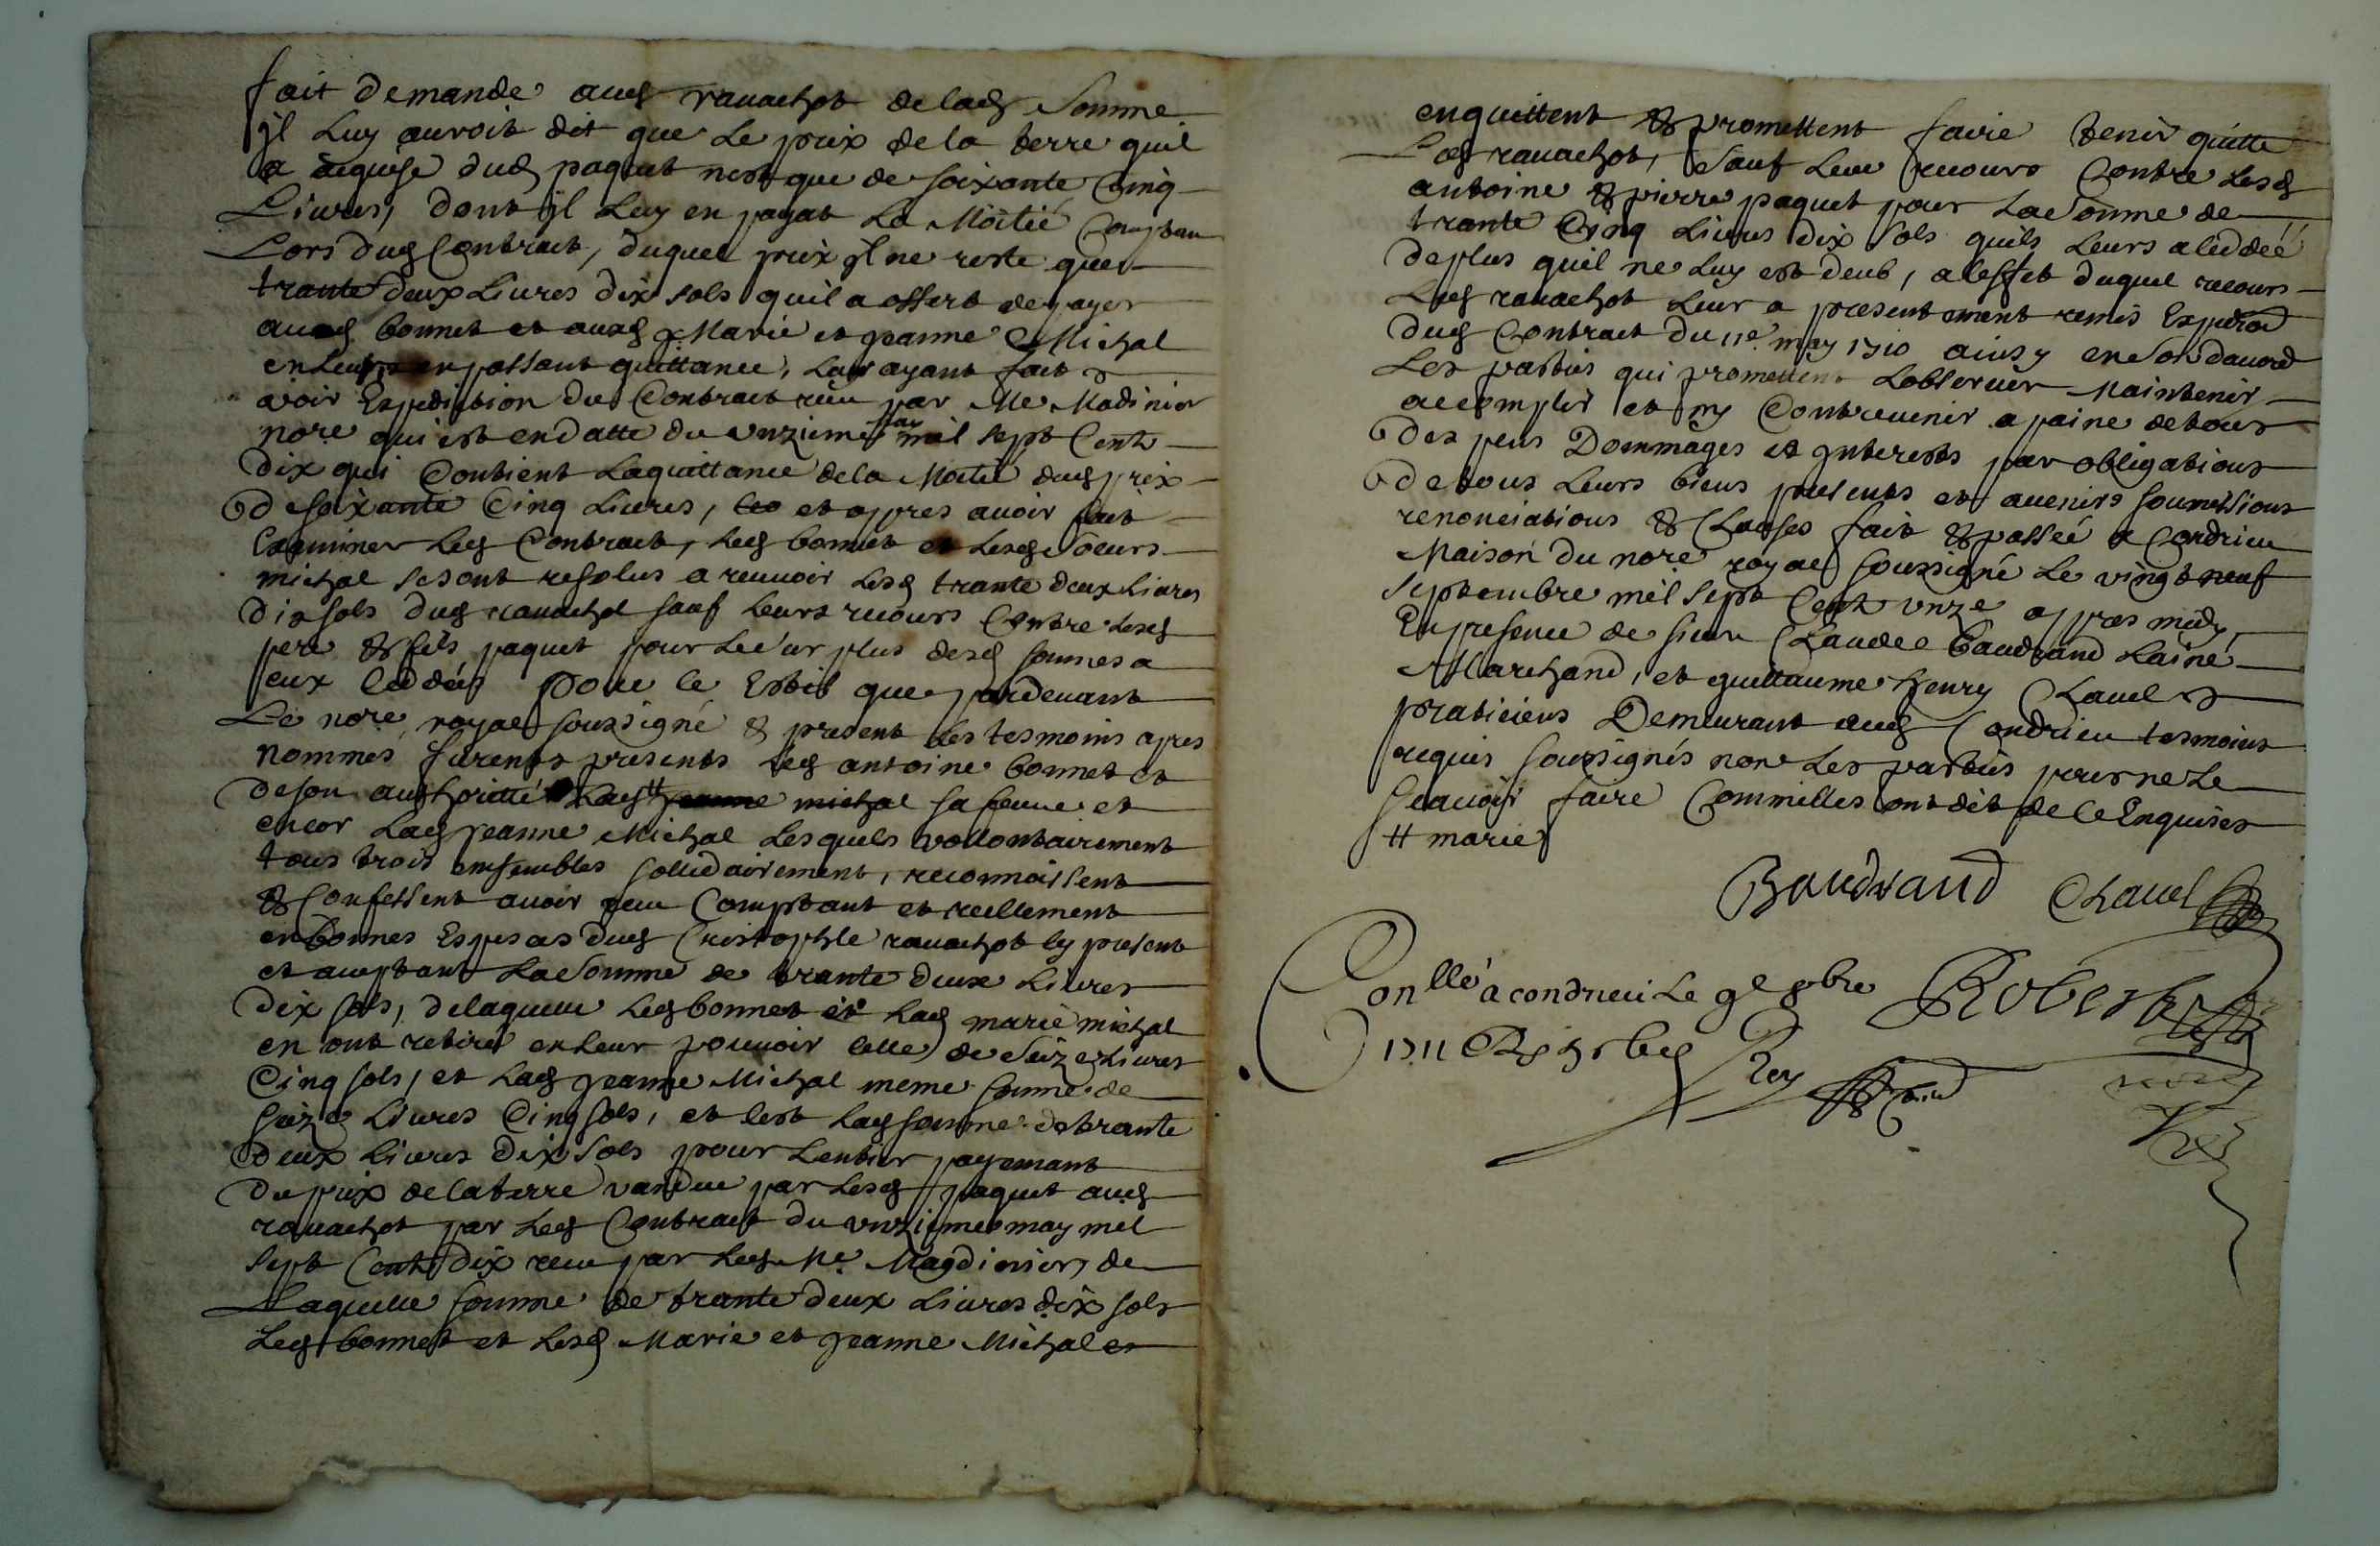 fait demande aud ravachot de lad somme
jl luy auroit dit que le prix de la terre quil
a acquise dud paquet nest que de soixante cinq
Livres, dont jl luy en payat la Moitié comptan
Lors dud Contract, duquel prix jl ne reste que
trante deux Livres dix sols quil a offert de payer
aud bonnet et ausd Marie et jeanne Michal
en leur en passant quittance, leur ayant fait
avoir Expedission du Contract reçu par Me Madinier
nore qui est en datte du unzieme may mil sept Cents
dix qui Contient la quittance de la Moitié dud prix
de soixante Cinq Livres, et appres avoir fait
Examiner led Contract, led bonnet et lesd soeurs
michal se sont resolus a recevoir lesd trante deux Livres
dix sols dud ravachol sauf leurs recours Contre lesd
pere & fils paquet pour le sur plus desd sommes a
eux ceddées pour ce Est il que pardevant
Le nore royal soussigné & present les tesmoins apres
nommés furents presents led antoine bonnet et
de son authoritté Lad # jeanne michal sa femme et
encor Lad jeanne Michal Lesquels vollontairement
tous trois ensembles sollidairement, reconnoissent
& Confessent avoir reçu Comptant et reellement
en bonnes Especes dud Cristophle ravachot icy present
et aceptant La somme de trante deux Livres
dix sols, de laquelle led bonnet et Lad marie michal
en ont retirés en leur pouvoir celle de seize Livres
Cinq sols, et lad jeanne Michal meme somme de
seize Livres Cinq sols, et cest lad somme de trante
deux Livres dix sols pour L'entier payemant
du prix de la terre vandue par lesd paquet aud
ravachot par led Contract du unzieme may mil
sept Cents dix reçu par led Me Magdinier, de
Laquelle somme de trante deux Livres dix sols
led bonnet et lesd Marie et jeanne Michal
en quittent & promettent faire tenir quitte
Led ravachot, sauf leur recours Contre lesd
antoine & pierre paquet pour La somme de
trante Cinq Livres dix sols quils leurs a ceddée
de plus quil ne luy est deub, a l'effet duquel recours
Led ravachot leur a presentement remis Expedon
dud Contract du 11e may 1710 ainsy en sont d'acord
Les parties qui promettent L'observer Maintenir
accomplir et ny Contrevenir a paine de tous
des pens Dommages et jnterests par obligations
de tous Leurs biens presents et avenirs soumissions
renonciations & Clauses fait & passée a Condrieu
Maison du nore royal soussigné Le vingt neuf
septembre mil sept Cents unze appres midy
En presence de sieur Claude Baudrand Lainé
Marchand, et guillaume henry Chavel
praticiens Demeurant aud Condrieu tesmoins
requis soussignés non les parties pour ne le
Scavoir faire Commelles ont dit de ce Enquises
# marie
Baudrand Chavel
Conllé a condrieu Le 9e 8bre Robert
1711
Rey